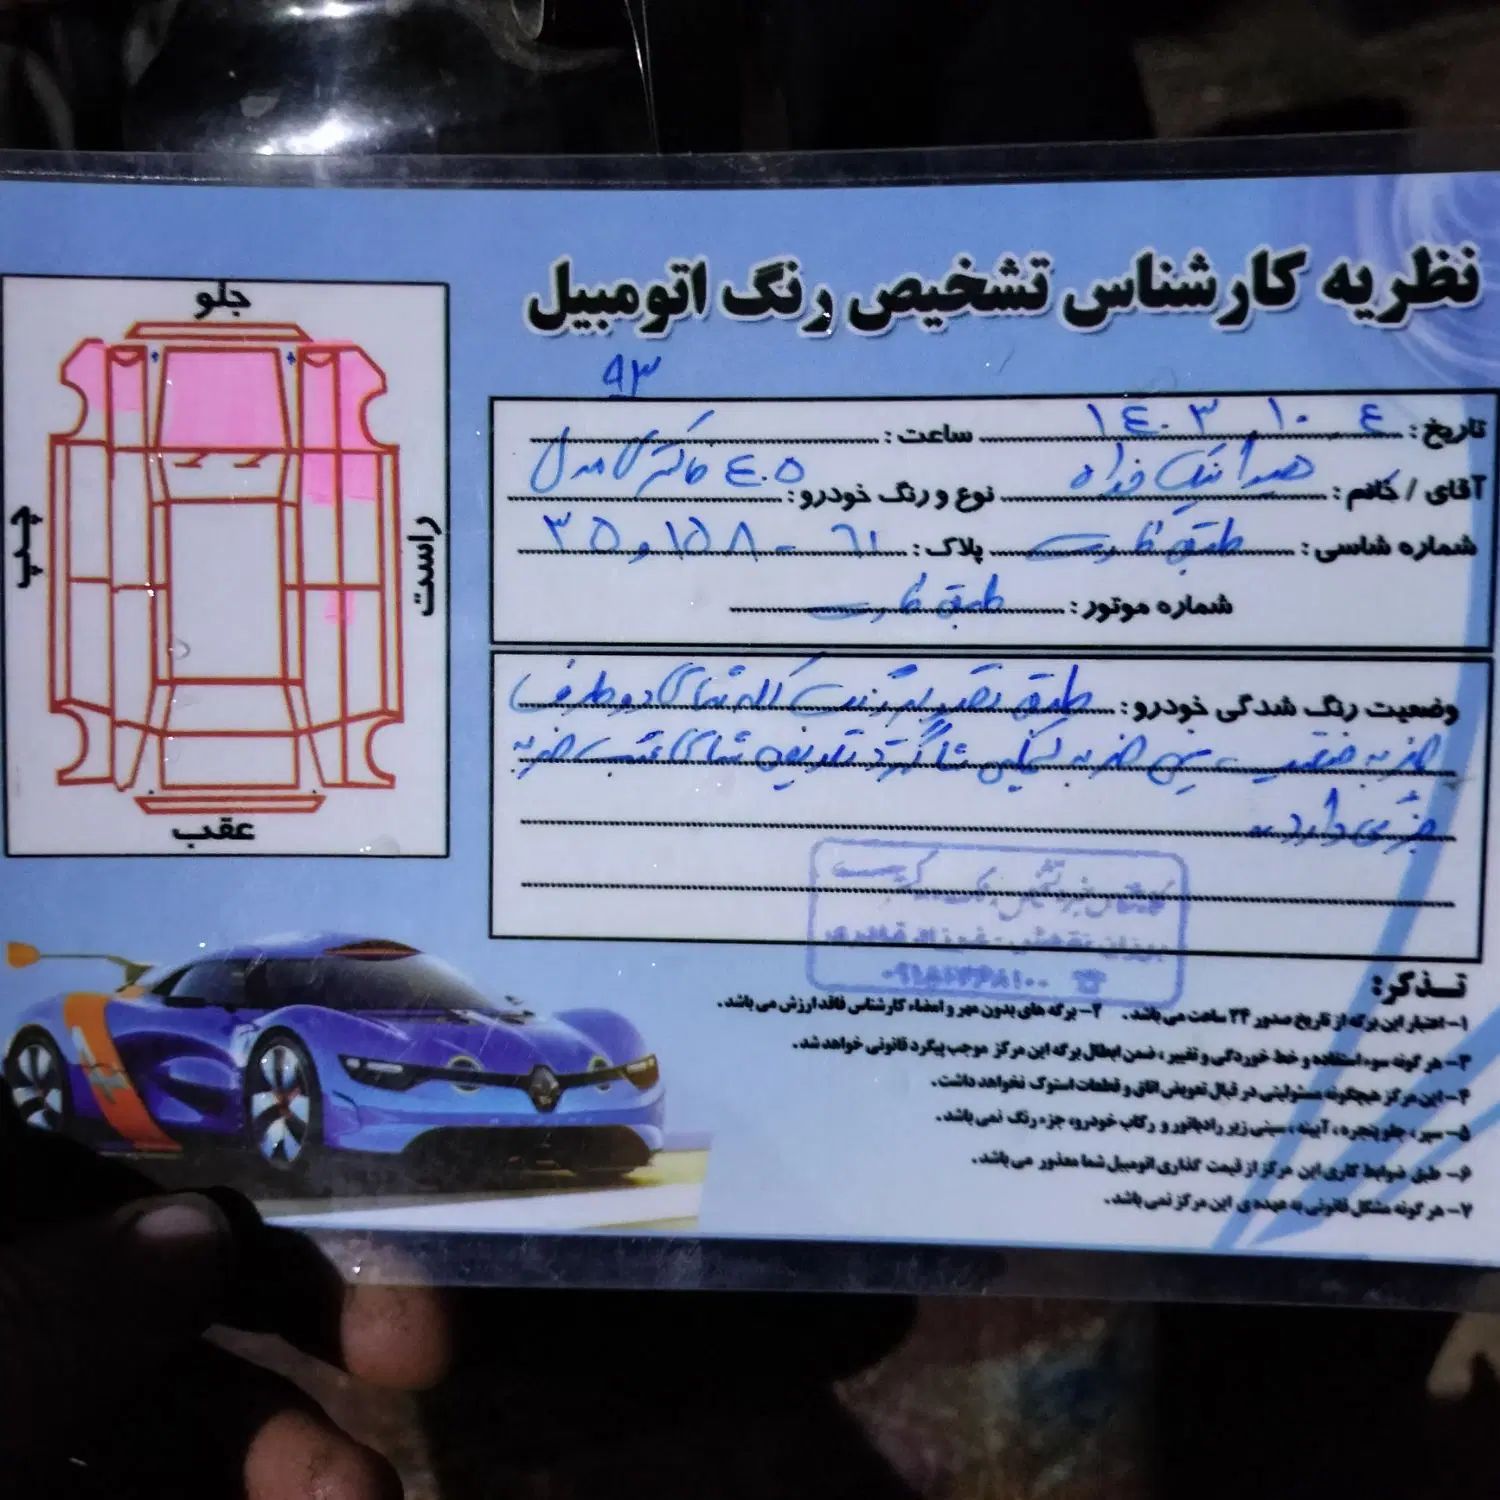 نظریه کارشناس تشخیص رنگ اتومبیل
جلو
چپ
راست
عقب
۹۳
تاریخ : ۱۴۰۳ ۱۰ ۴ ساعت :
آقای / خانم : نوع و رنگ خودرو : ۴۰۵ خاکستری مدل
شماره شاسی : طبق کارت پلاک : ۶۱ - ۱۵۸ و ۳۵
شماره موتور : طبق کارت
وضعیت رنگ شدگی خودرو : طبق تصویر زیر است کله شاسی دو طرف
ضربه خفیف سینی ضربه شاگرد شاسی عقب ضربه
جزئی دارد
تـذکر:
۱- اعتبار این برگه از تاریخ صدور ۲۴ ساعت می باشد. ۲- برگه های بدون مهر و امضاء کارشناس فاقد ارزش می باشد.
۳- هر گونه سوء استفاده و خط خوردگی و تغییر ، ضمن ابطال برگه این مرکز موجب پیگرد قانونی خواهد شد.
۴- این مرکز هیچگونه مسئولیتی در قبال تعویض اتاق و قطعات استوک نخواهد داشت.
۵- سپر ، جلو پنجره ، آیینه ، سینی زیر رادیاتور و رکاب خودرو، جزء رنگ نمی باشد.
۶- طبق ضوابط کاری این مرکز از قیمت گذاری اتومبیل شما معذور می باشد.
۷- هر گونه مشکل قانونی به عهده ی این مرکز نمی باشد.